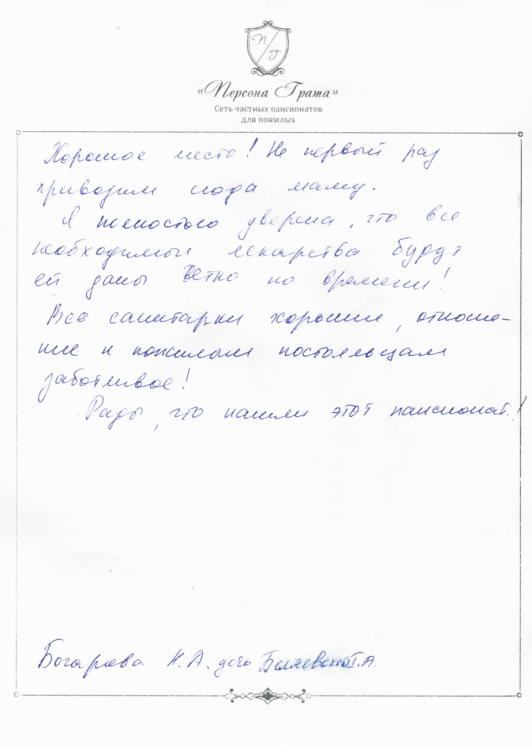 П
Г
«Персона Грата»
Сеть частных пансионатов
для пожилых
Хорошее место! Не первый раз
привозим сюда маму.
Я полностью уверена, что все
необходимые лекарства будут
ей даны четко по времени!
Все санитарки хорошие, отноше-
ние к пожилым постояльцам
заботливое!
Рады, что нашли этот пансионат!
Н.А. дочь Т.А.